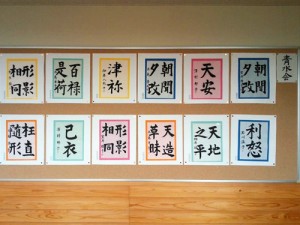 朝聞
夕改
天安
朝聞
夕改
津祢
百禄
是荷
形影
相同
利怒
天地
之平
天造
草昧
形影
相同
己衣
枉直
随形